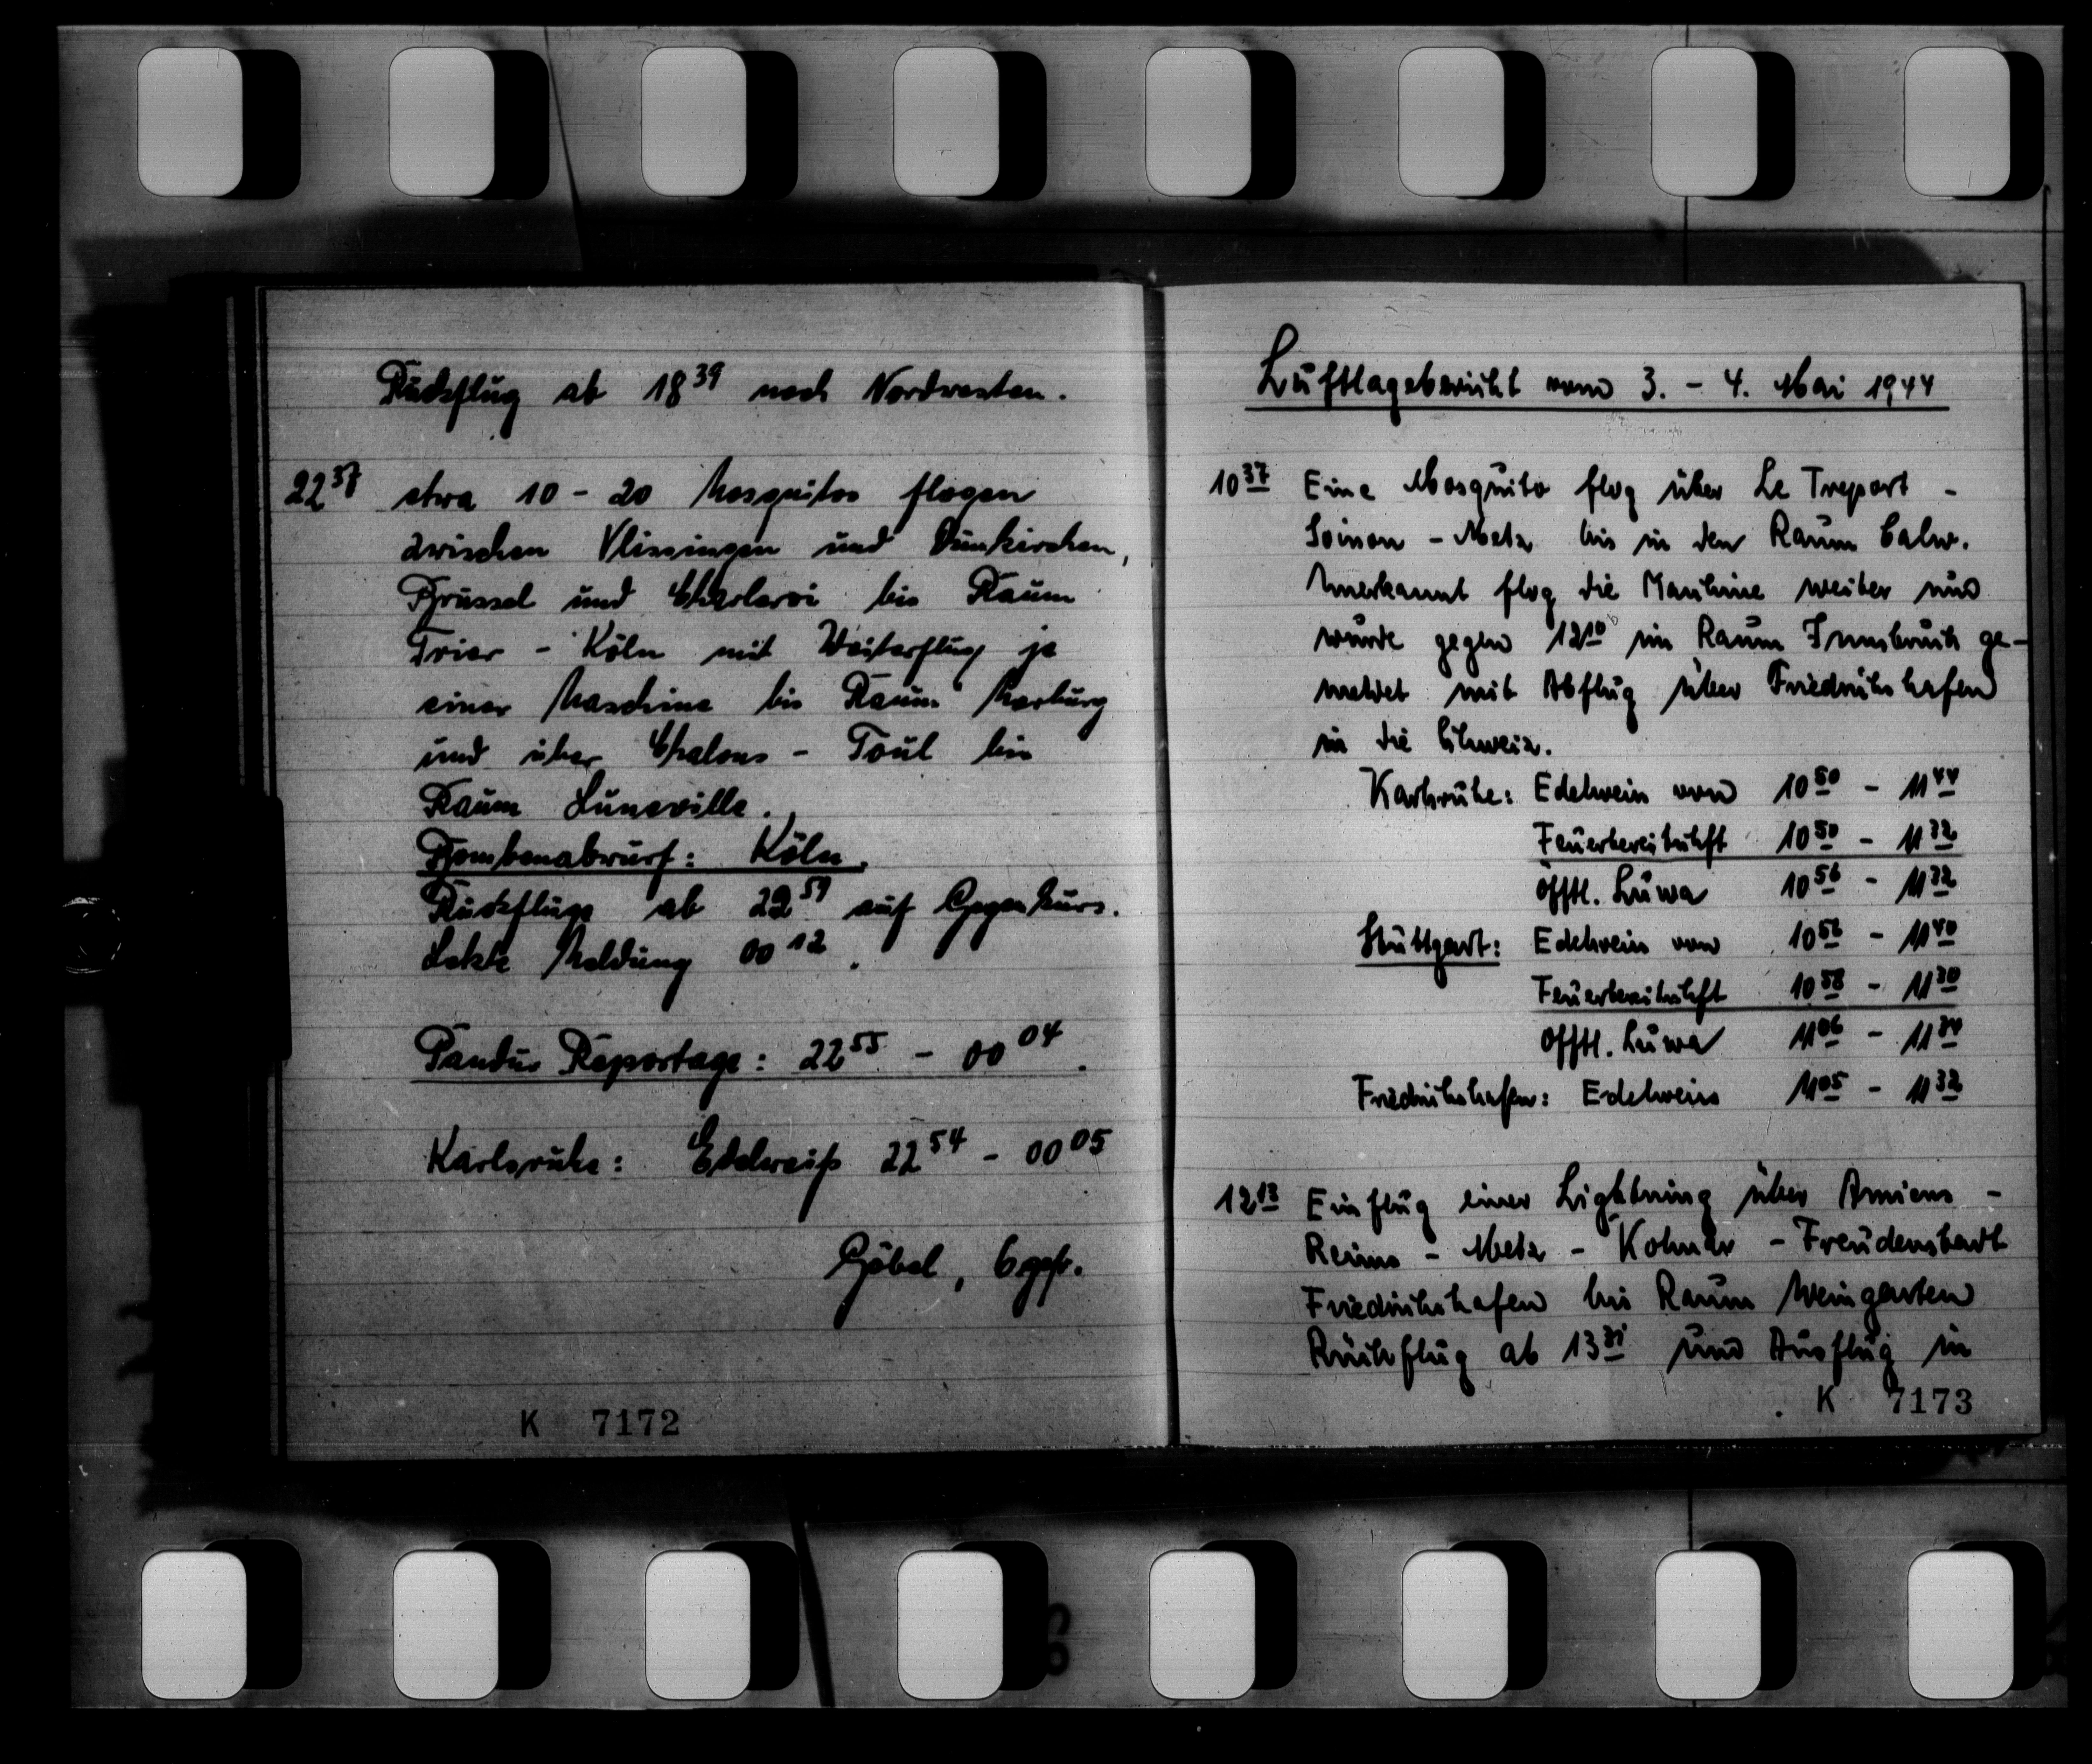 Rückflug ab 18³⁹ nach Nordwesten.
22³⁷ etwa 10 - 20 Mosquitos flogen
zwischen Vlissingen und Dünkirchen,
Brüssel und Charleroi bis Raum
Trier - Köln mit Weiterflug je
einer Maschine bis Raum Marburg
und über Chalons - Toul bis
Raum Luneville.
Bombenabwurf: Köln.
Rückflüge ab 22⁵⁹ auf Gegenkurs.
Letzte Meldung 00¹².
Reportage: 22⁵⁵ - 00⁰⁴.
Karlsruhe: Edelweiß 22⁵⁴ - 00⁰⁵
Göbel, Ogefr.
K 7172
Luftlagebericht vom 3. - 4. Mai 1944
10³⁷ Eine Mosquito flog über Le Treport -
Soisson - Metz bis in den Raum Calw.
Unerkannt flog die Maschine weiter und
wurde gegen 12¹⁰ im Raum Innsbruck ge-
meldet mit Abflug über Friedrichshafen
in die Schweiz.
Karlsruhe: Edelweiss von 10⁵⁰ - 11⁴⁴
Feuerbereitschft 10⁵⁰ - 11³²
Öfftl. Luwa 10⁵⁶ - 11³²
Stuttgart: Edelweiss von 10⁵⁶ - 11⁴⁰
Feuerbereitschft 10⁵⁸ - 11³⁰
Öfftl. Luwa 11⁰⁶ - 11³⁰
Friedrichshafen: Edelweiss 11⁰⁵ - 11³²
12¹³ Einflug einer Lightning über Amiens -
Reims - Metz - Kolmar - Freudenstadt
Friedrichshafen bis Raum Weingarten
Rückflug ab 13³¹ und Ausflug in
K 7173